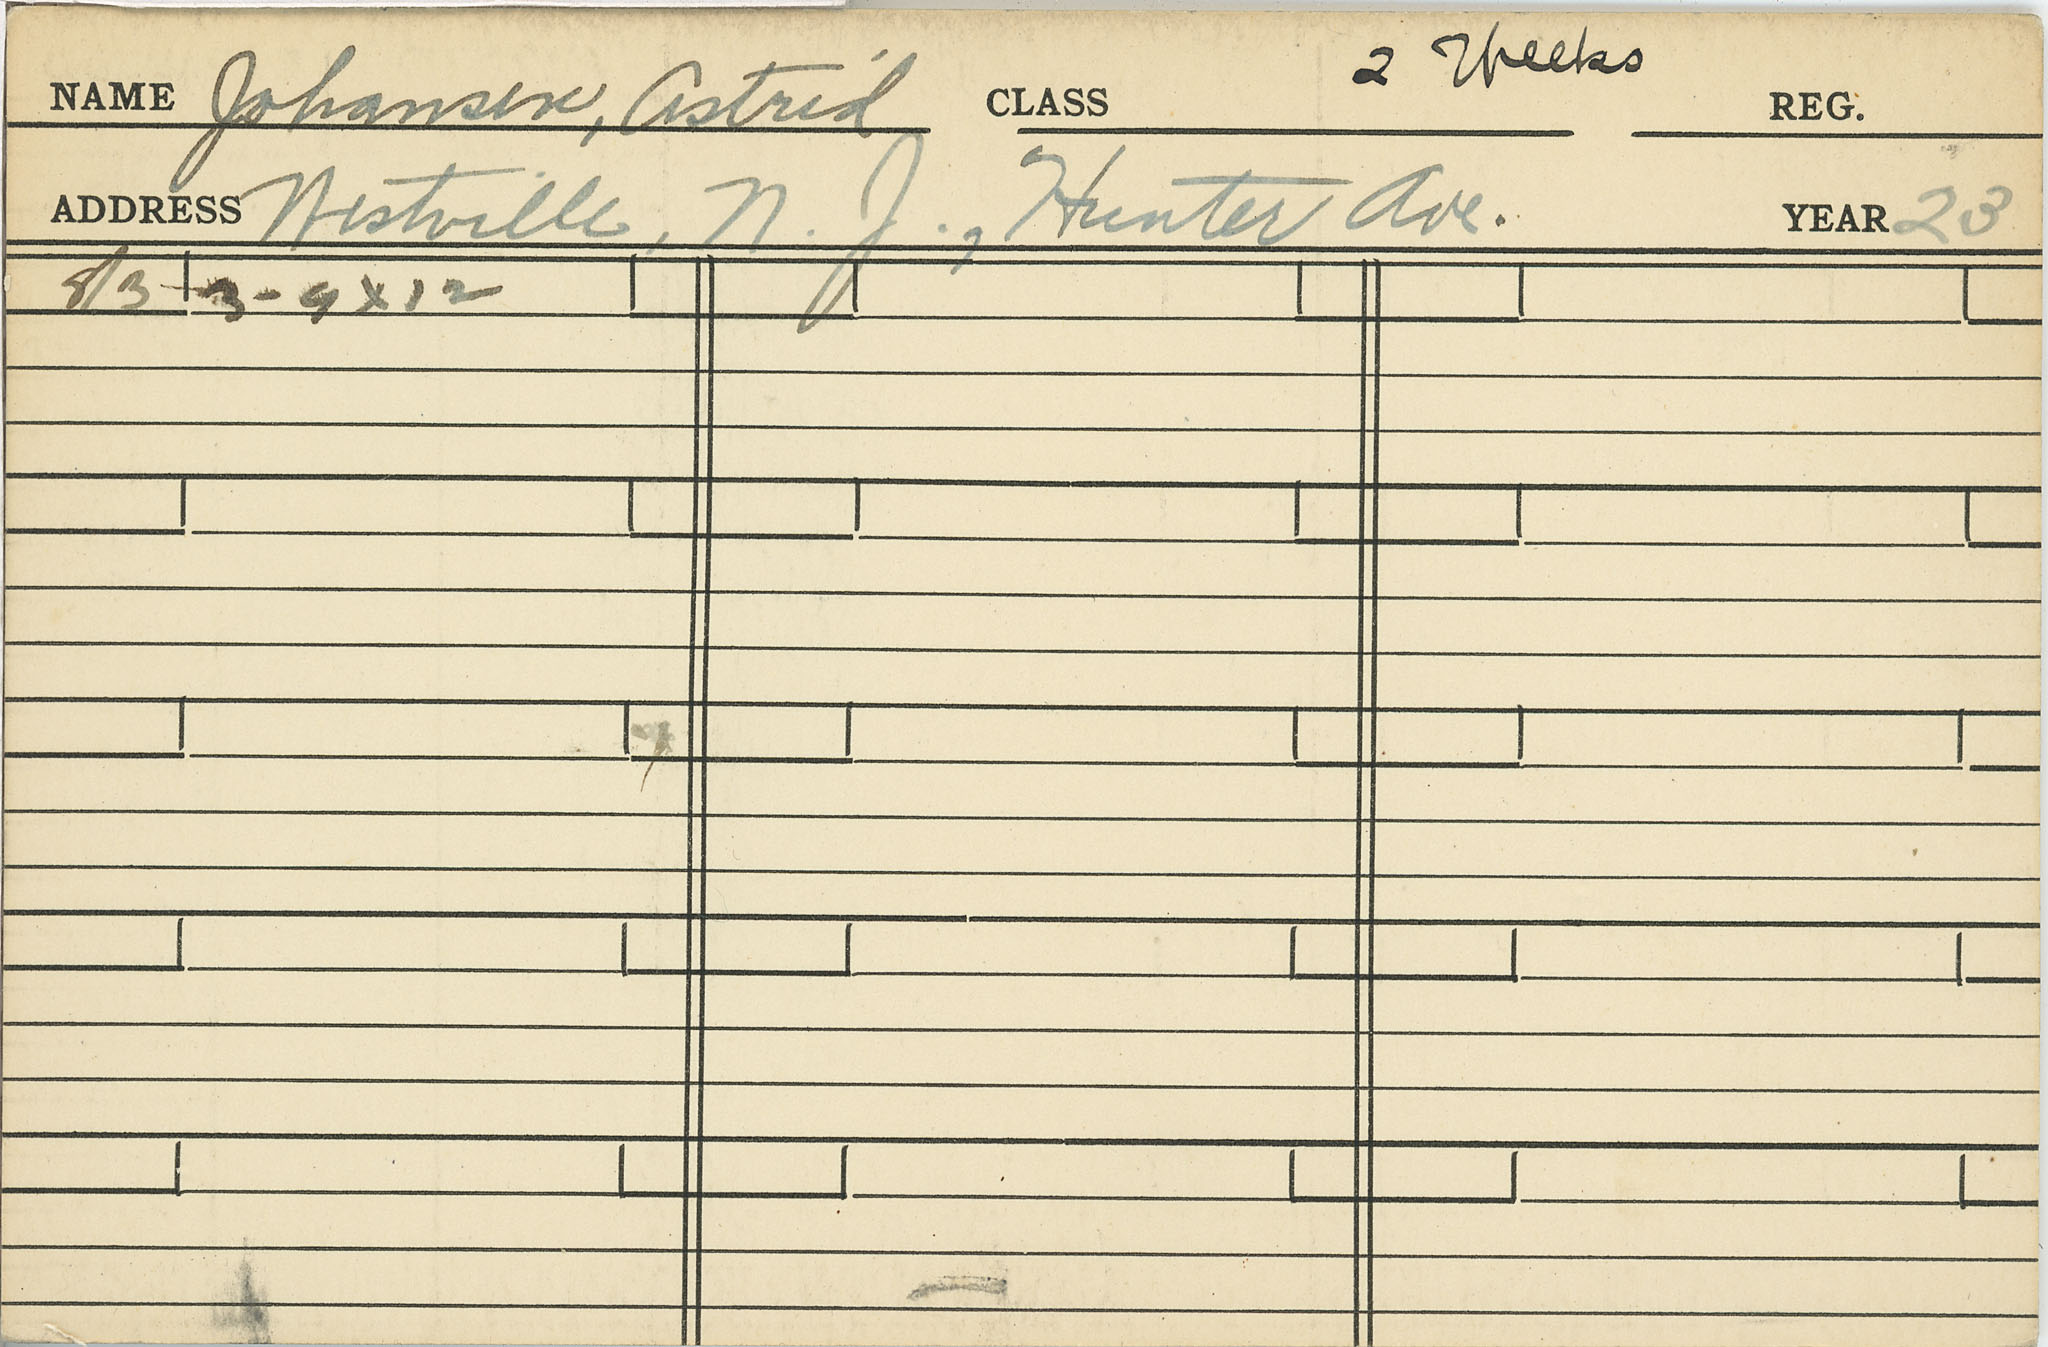 NAME Johansen, Astrid CLASS 2 Weeks REG.
ADDRESS Westville, N. J., Hunter Ave. YEAR 23
8/3 - 3 - 9 x 12